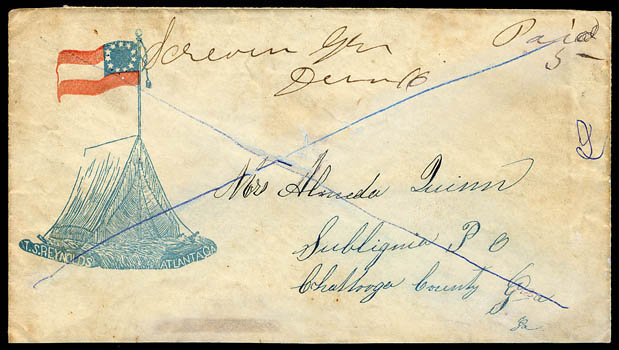 Screven Ga
Paid
5
Mrs Almeda Quinn
Sublignia P O
Chattooga County Geo
Ga
T.S. REYNOLDS ATLANTA, GA